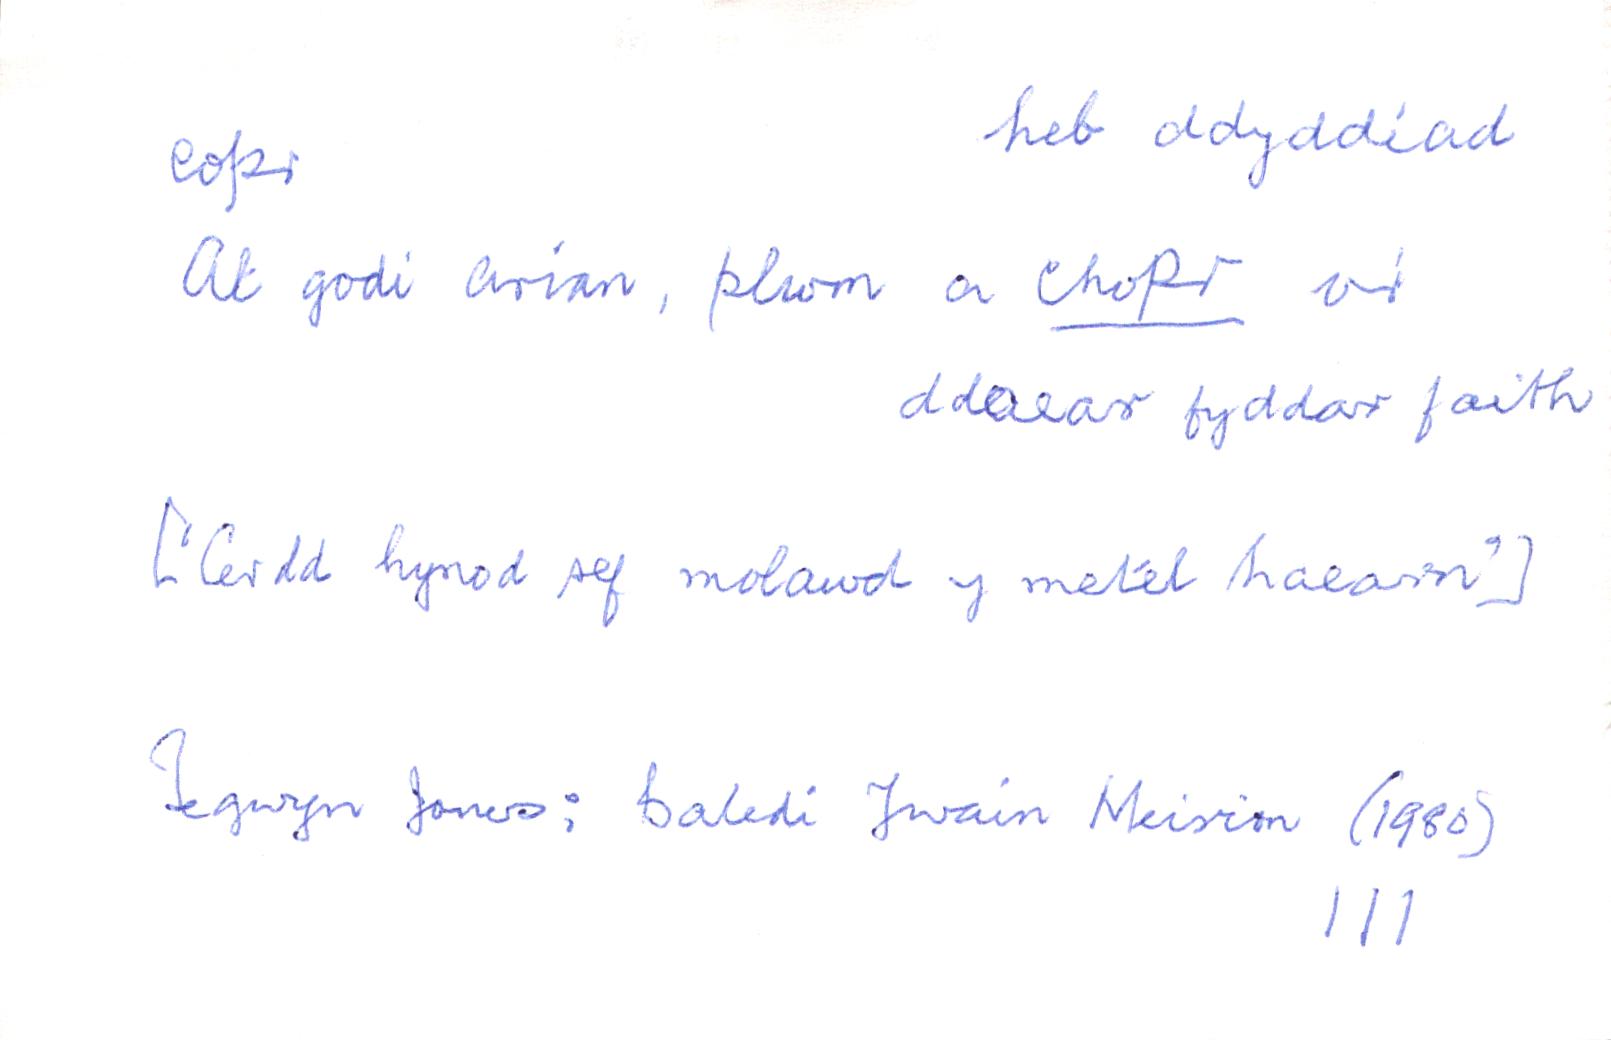 copr
heb ddyddiad
At godi arian, plwm a chopr o'i
ddaear fyddar faith
['Cerdd hynod sef molawd y metel haearn']
Tegwyn Jones; Baledi Ywain Meirion (1980)
111